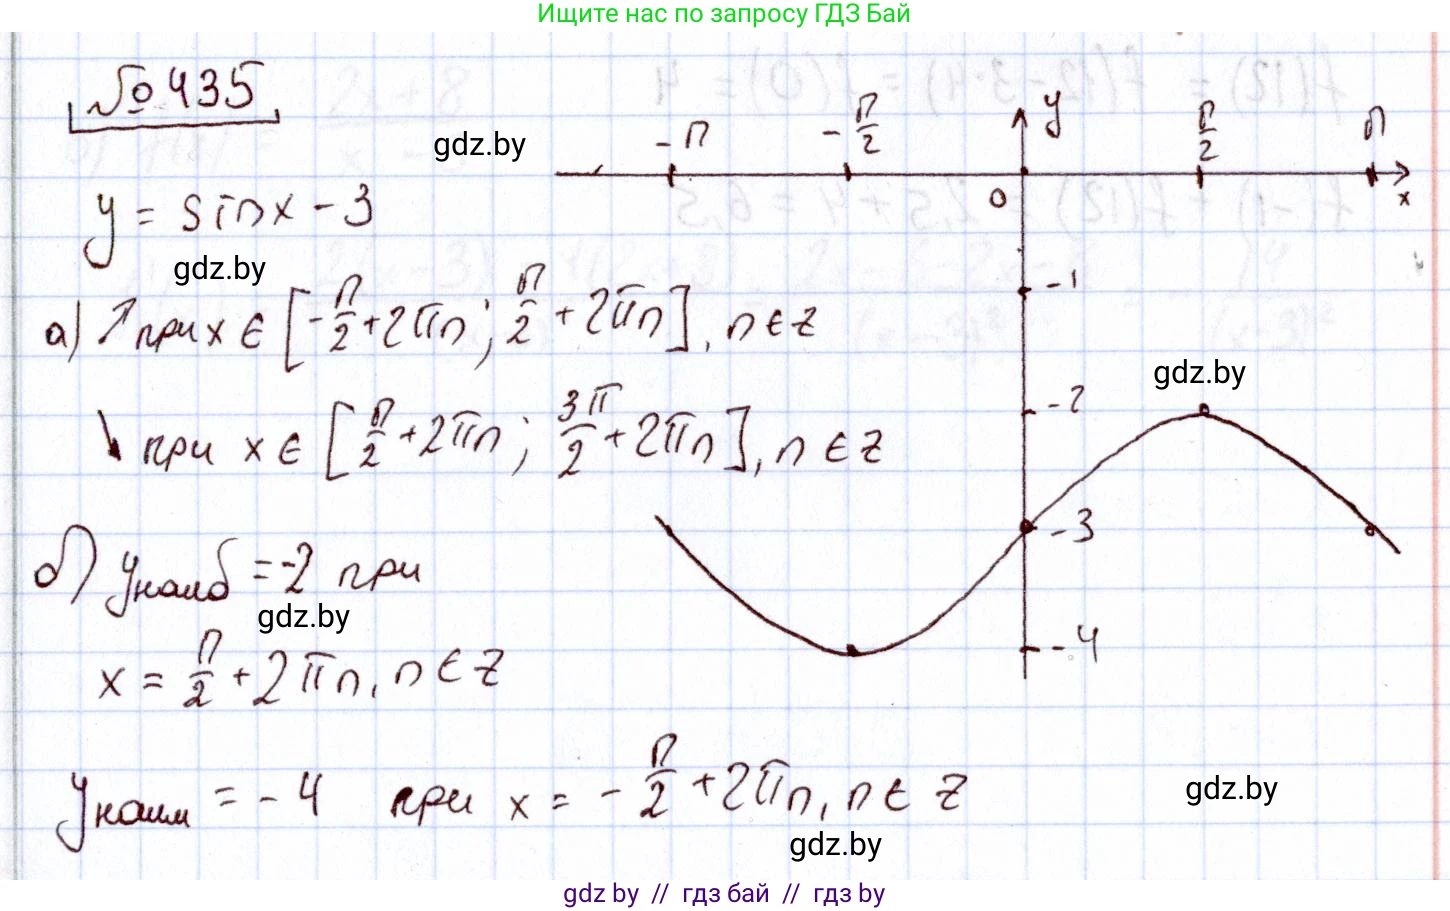 Ищите нас по запросу ГДЗ Бай
№ 435
gdz.by
y = sin x - 3
gdz.by
а) ↗ при x ∈ [-π/2 + 2πn; π/2 + 2πn], n ∈ Z
↘ при x ∈ [π/2 + 2πn; 3π/2 + 2πn], n ∈ Z
б) yнаиб = -2 при
gdz.by
x = π/2 + 2πn, n ∈ Z
yнаим = -4 при x = -π/2 + 2πn, n ∈ Z
gdz.by
-π -π/2 y π/2 π
0 x
-1
gdz.by
-2
-3
-4
gdz.by
gdz.by // гдз бай // гдз by